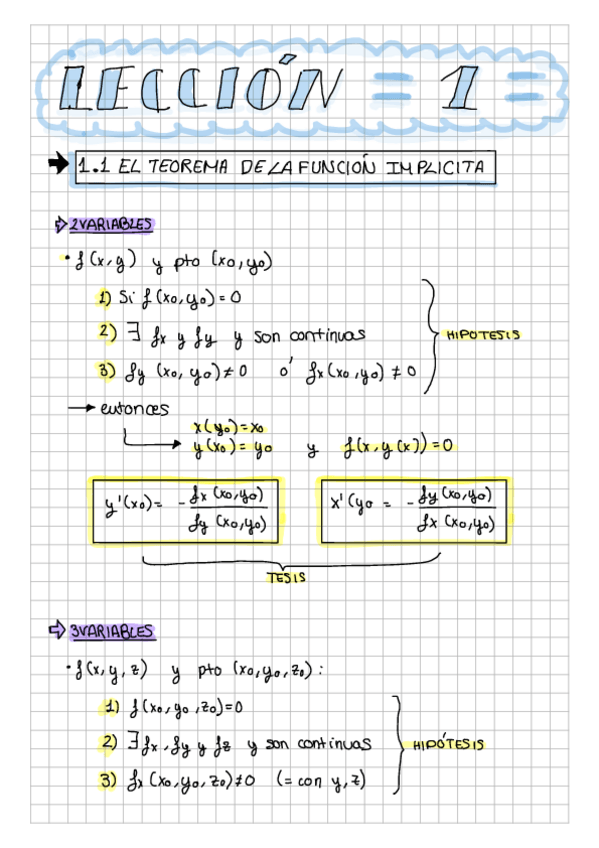 LECCIÓN = 1 =
1.1 EL TEOREMA DE LA FUNCIÓN IMPLICITA
2VARIABLES
• f(x,y) y pto (x0,y0)
1) Si f(x0,y0)=0
2) ∃ fx y fy y son continuas
3) fy (x0, y0)≠0 o' fx(x0,y0) ≠ 0
HIPOTESIS
→ entonces
x(y0)=x0
y(x0)= y0 y f(x,y(x))=0
y'(x0)= - fx(x0,y0) / fy (x0,y0)
x'(y0 = - fy(x0,y0) / fx (x0,y0)
TESIS
3VARIABLES
• f(x,y,z) y pto (x0,y0,z0):
1) f(x0,y0,z0)=0
2) ∃fx,fy y fz y son continuas
3) fx(x0,y0,z0)≠0 (= con y,z)
HIPÓTESIS